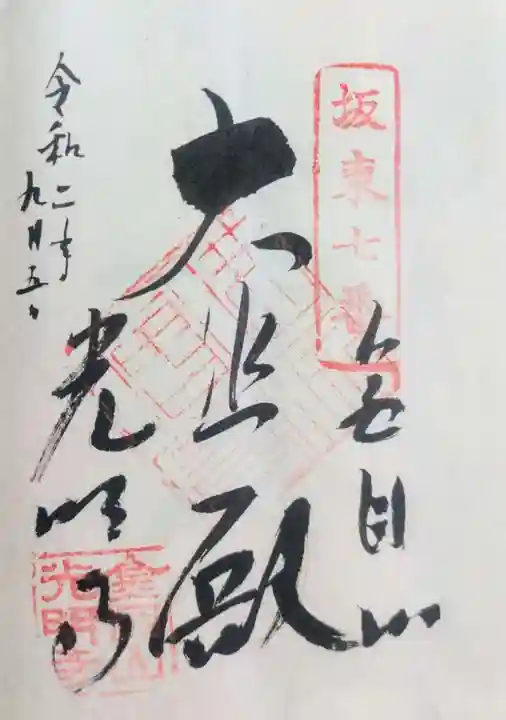 坂東七番
金目山
大悲殿
令和二年
九月五日
光明寺
金目山
光明寺